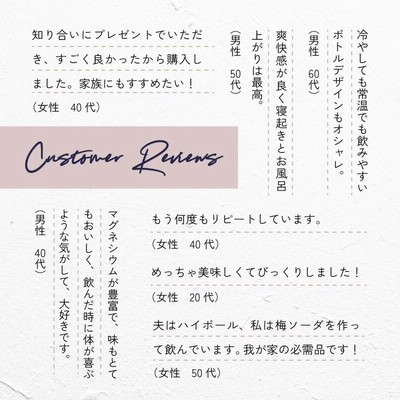 知り合いにプレゼントでいただ
き、すごく良かったから購入し
ました。家族にもすすめたい！
（女性　40代）
冷やしても常温でも飲みやすい
ボトルデザインもオシャレ。
（男性　60代）
爽快感が良く寝起きとお風呂
上がりは最高。
（男性　50代）
Customer Reviews
マグネシウムが豊富で、味もとて
もおいしく、飲んだ時に体が喜ぶ
ような気がして、大好きです。
（男性　40代）
もう何度もリピートしています。
（女性　40代）
めっちゃ美味しくてびっくりしました！
（女性　20代）
夫はハイボール、私は梅ソーダを作っ
て飲んでいます。我が家の必需品です！
（女性　50代）